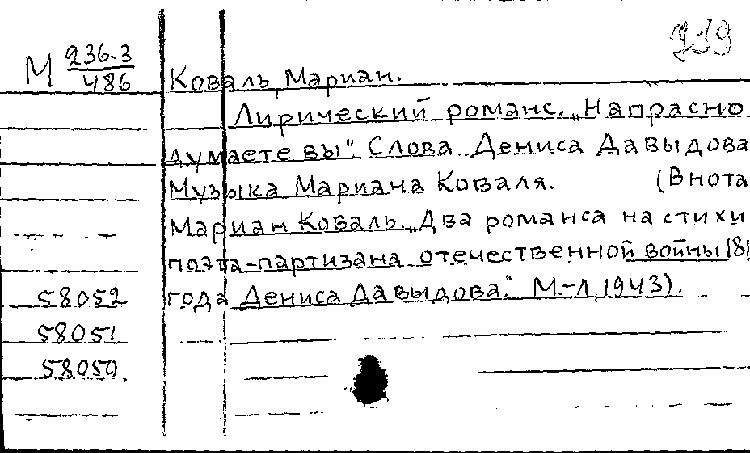 219
М 236-3
486
Коваль, Мариан.
Лирический романс. „Напрасно
думаете вы". Слова Дениса Давыдова
Музыка Мариана Коваля. (Внота
Мариан Коваль. „Два романса на стихи
поэта-партизана отечественной войны 181
года Дениса Давыдова." М-Л, 1943).
58052
58051
58050.